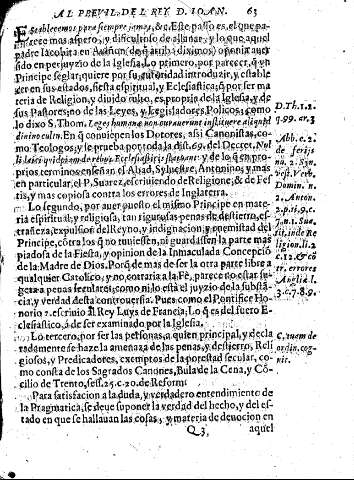 AL PREVIL. DEL REY D. IOAN. 63
Establecemos para siempre jamas, &c. Este passo es, el que pa-
rece mas aspero, y dificultoso de allanar, y lo que aquel
Principe seglar, quiere por su autoridad introducir, y estable
cer en sus estados, fiesta espiritual, y Eclesiastica, q̃ por ser ma
teria de Religion, y diuido culto, es propia de la Iglesia, y de
sus Pastores; no de los Leyes, y Legisladores Policos; como
lo dixo S. Thom. Leges humanæ non curauerunt instituere aliquid
diuino cultu. En q̃ conuienen los Dotores, assi Canonistas, co-
mo Teologos; y se prueba por toda la dist. 69. del Decret.
y de lo q̃ en pro-
prios terminos enseñan el Abad, Syluestre, Antonino, y mas
en particular, el P. Suarez, escriuiendo de Religione; & de Fes-
tis, y mas copiosa contra los errores de Inglaterra.
Lo segundo, por auer puesto el mismo Principe en mate
ria espiritual, y religiosa, tan rigurosas penas de destierro, es-
trañeza, expulsion del Reyno, y indignacion, y enemistad del
Principe, cõtra los q̃ no tuuiessen, ni guardassen la parte mas
piadosa de la Fiesta, y opinion de la Inmaculada Concepció
de la Madre de Dios. Porq̃ de mas de ser la otra parte libre à
qualquier Catolico, y no contraria a la Fè, parece no estar su-
geta a penas seculares; como ni lo està el juyzio de la substã-
cia, y verdad desta controuersia. Pues como el Pontifice Ho-
norio ?. escriuio al Rey Luys de Francia; Lo q̃ es del fuero E-
clesiastico, à de ser examinado por la Iglesia.
Lo tercero, por ser las personas, a quien principal, y decla
radamente se haze la amenaza de las penas, y destierro, Reli
giosos, y Predicadores, exemptos de la potestad secular, co-
mo consta de los Sagrados Canones, Bula de la Cena, y Cõ-
cilio de Trento, sess. 25. c. 20. de Reform.
Para satisfacion a la duda, y verdadero entendimento de
la Pragmatica, se deue suponer la verdad del hecho, y del es-
tado en que se hallauan las cosas, y materia de deuocion en
Q 3, aquel
D. Th. 1. 2.
q. 99. ar. 3
Abb. c. 2.
de ferijs
nu. 2. Syn.
vest. Verb.
Domin. n.
2. Anton.
2. p. ti. 9. c.
c. 12. & cõ
tr. errores
Angliæ l.
3. c. 7. 8. 9.
C. tuam de
ordin. cog-
nic.